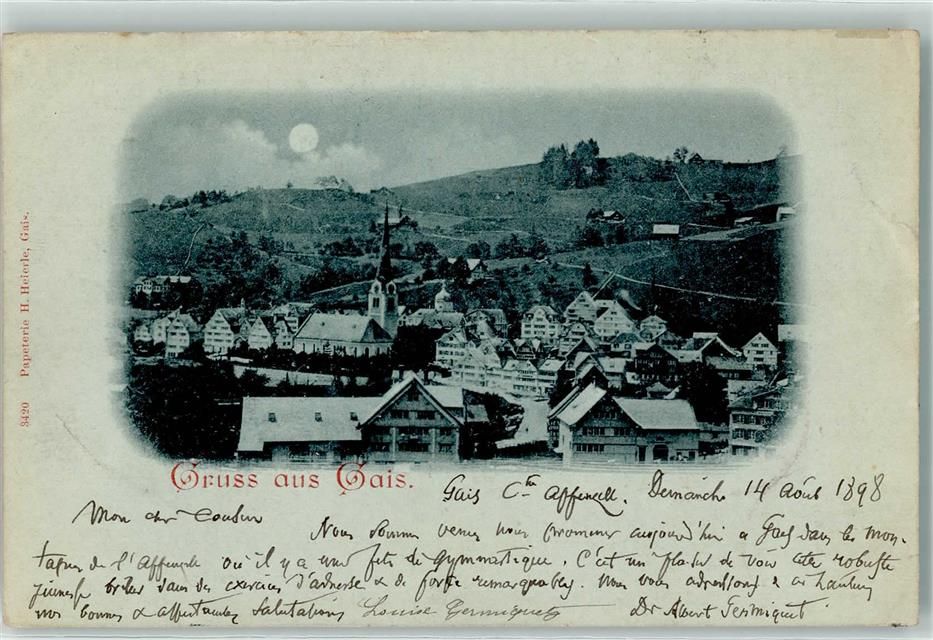 3420 Papeterie H. Heierle, Gais.
Gruss aus Gais.
Gais Ctn Appenzell. Dimanche 14 Août 1898
Mon cher Cousin
Nous sommes venus nous promener aujourd'hui a Gais dans les mon-
tagnes de l'Appenzell où il y a une fête de gymnastique. C'est un plaisir de voir cette robuste
jeunesse briller dans des exercices d'adresse & de force remarquables. Nous vous adressons de ces hauteurs
nos bonnes & affectueuses salutations Louise Germiquet Dr Albert Germiquet